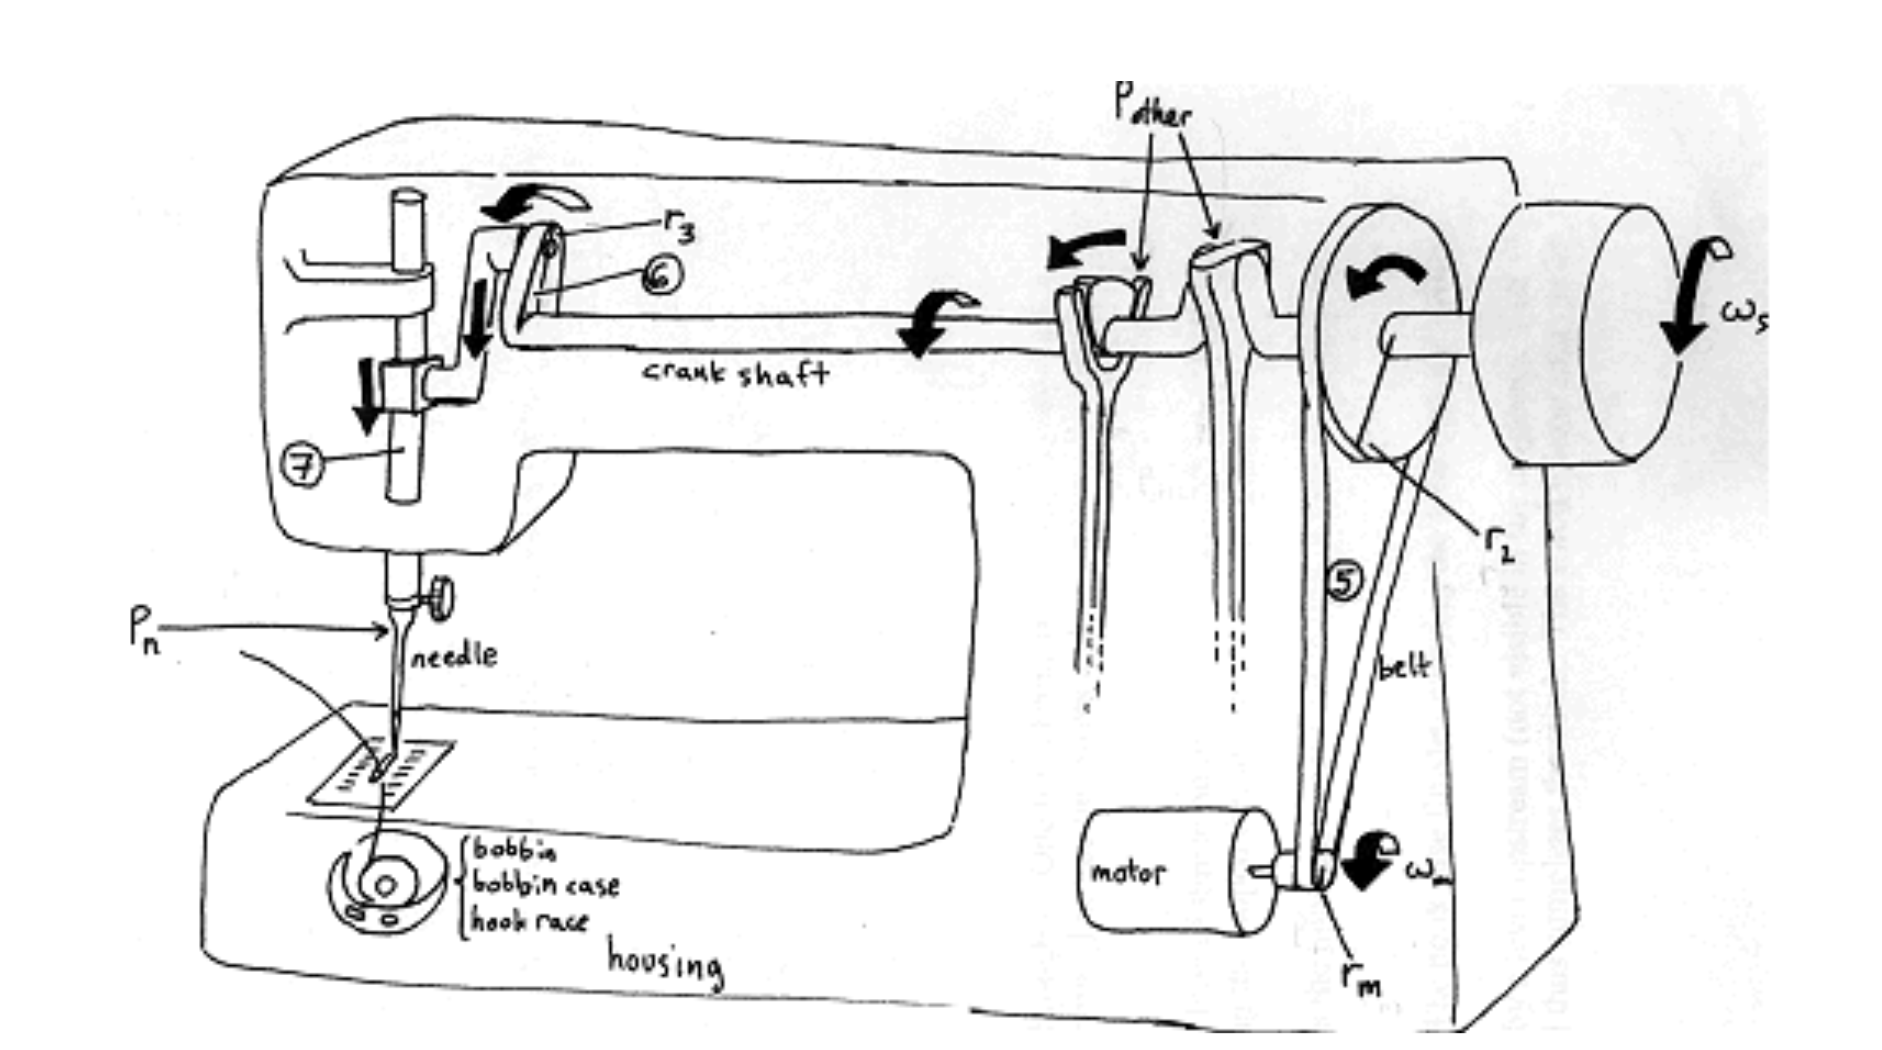 Pother
r3
6
ωs
crank shaft
7
r2
5
Pn
needle
belt
bobbin
bobbin case
hook race
motor
ωm
housing
rm